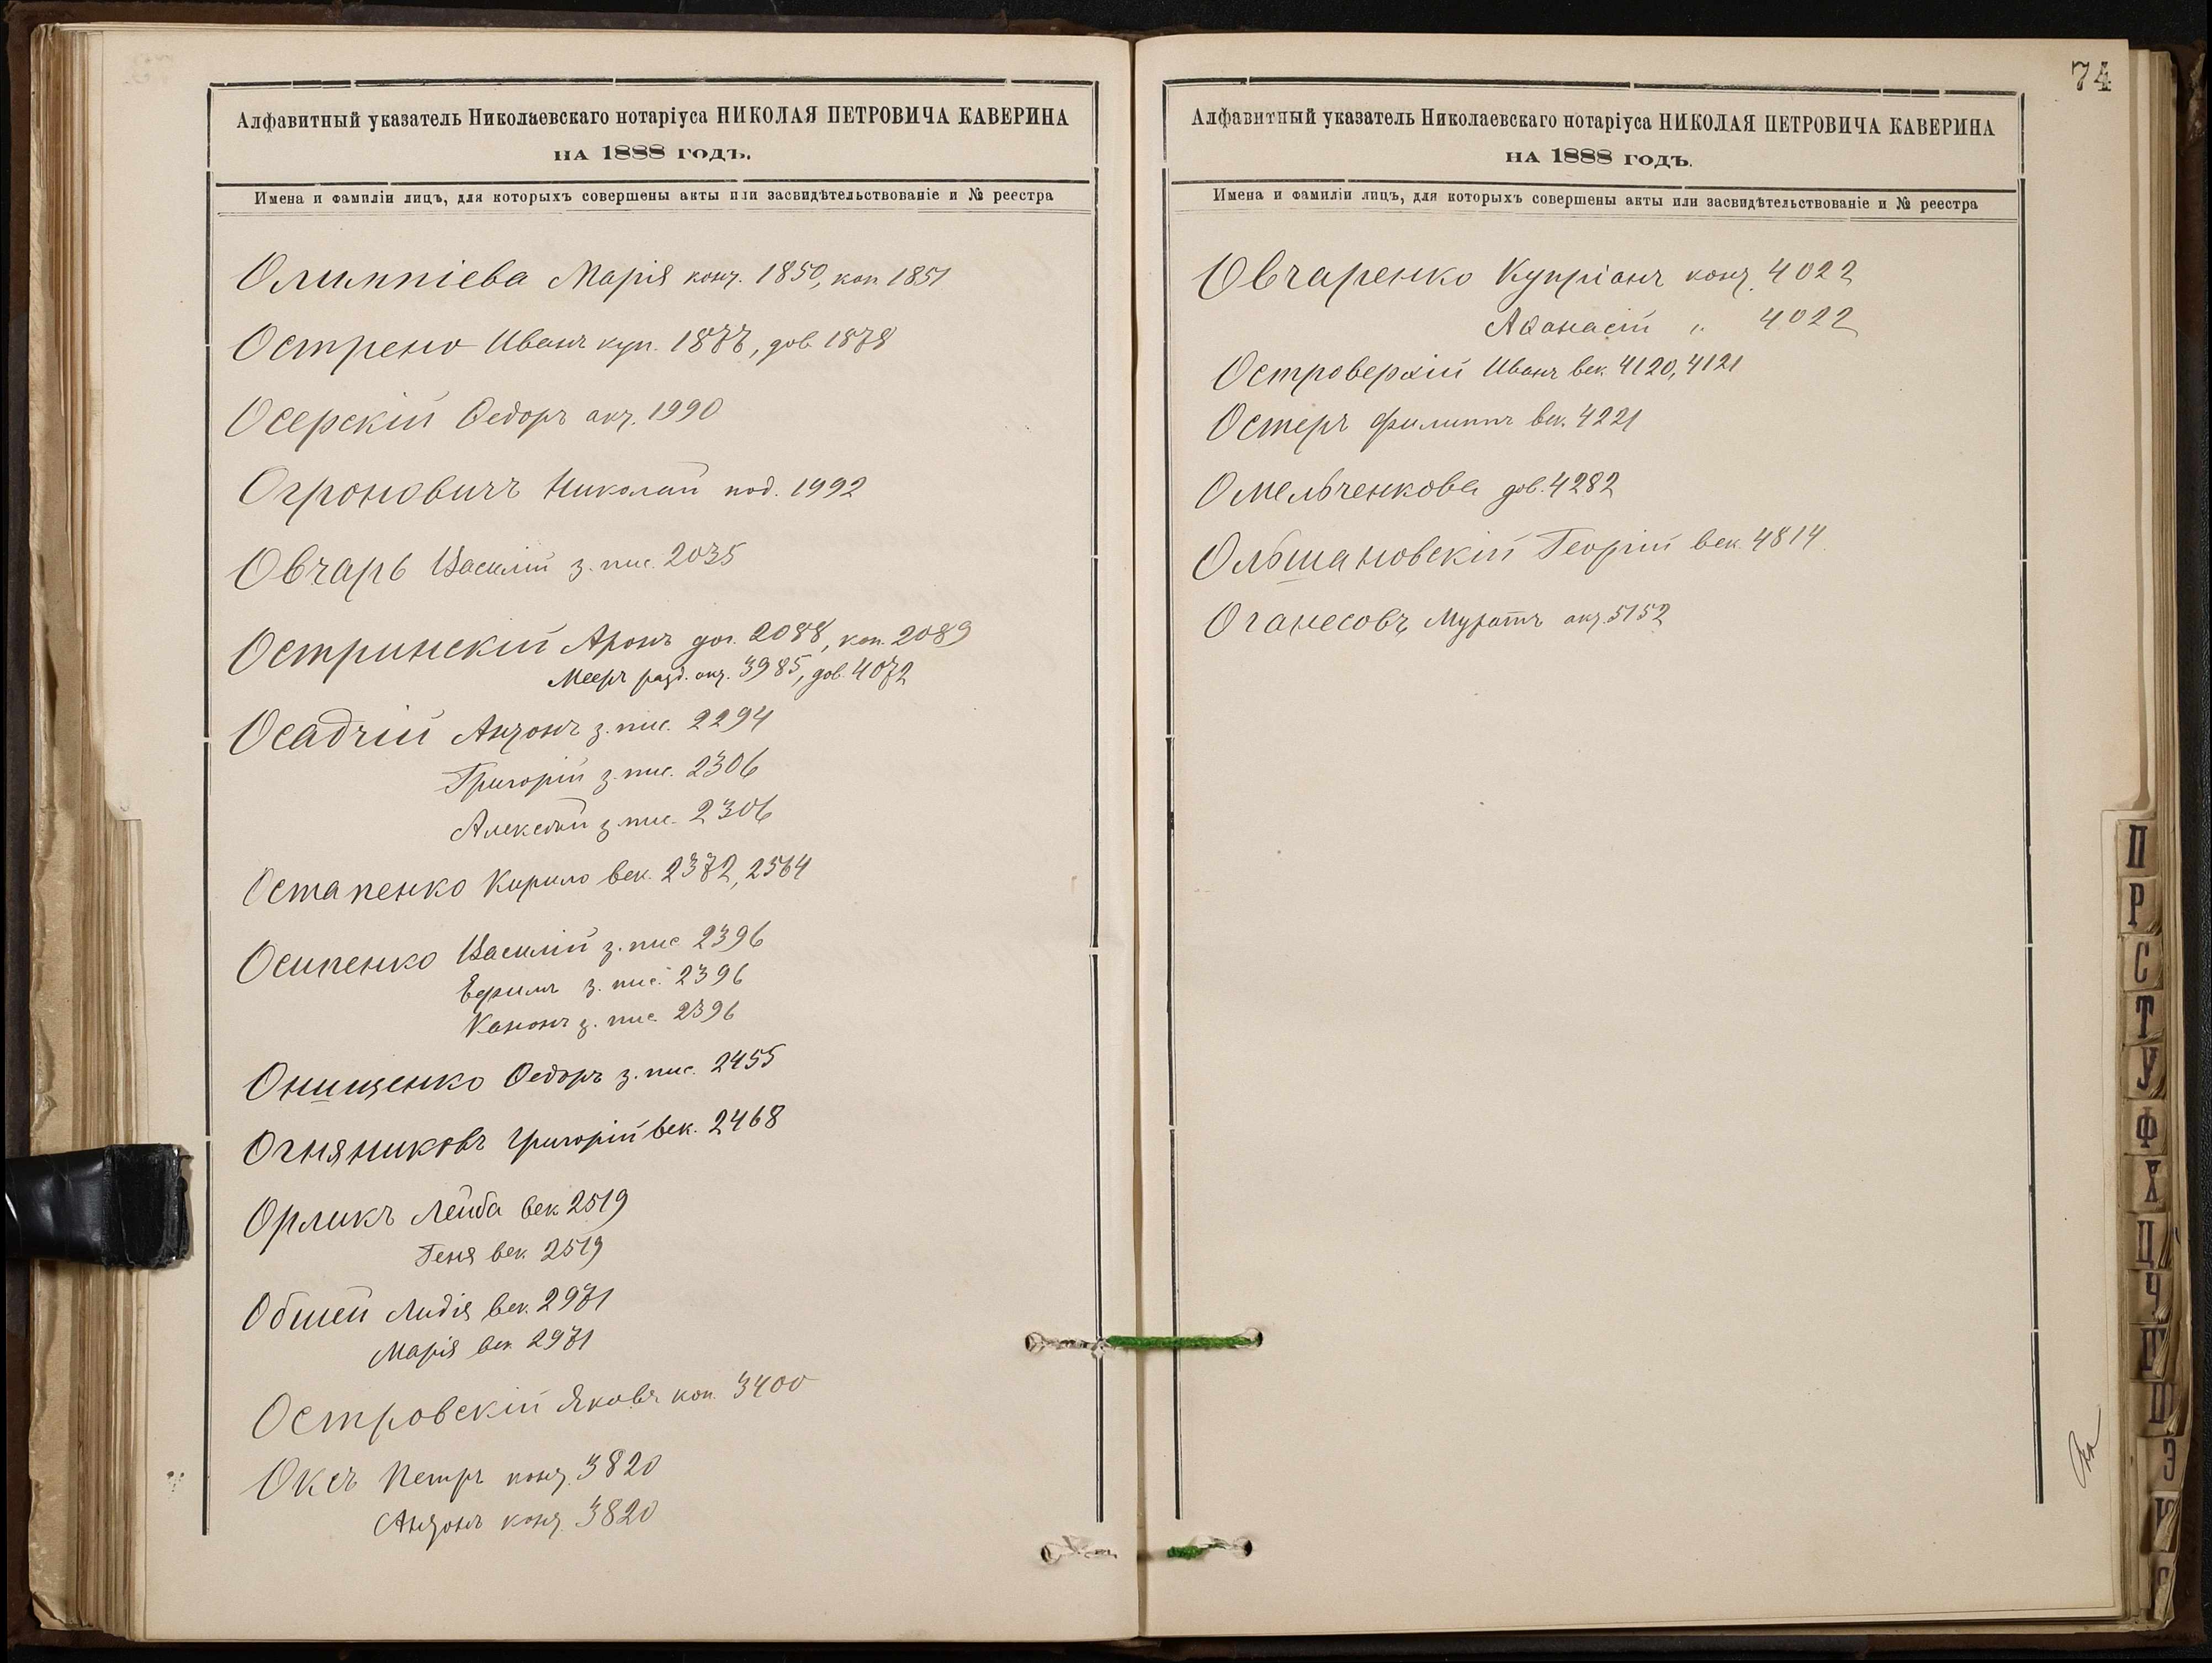 Алфавитный указатель Николаевскаго нотаріуса НИКОЛАЯ ПЕТРОВИЧА КАВЕРИНА
НА 1888 ГОДЪ.
Имена и фамиліи лицъ, для которыхъ совершены акты или засвидѣтельствованіе и № реестра
Олимпіева Марія конт. 1850, коп. 1851
Острено Иванъ куп. 1877, дов. 1878
Осерскій Ѳедоръ акт. 1990
Огроновичъ Николай под. 1992
Овчарь Василій з. пис. 2035
Остринскій Аронъ дог. 2088, коп. 2089
Мееръ разд. акт. 3985, дов. 4072
Осадчій Антонъ з. пис. 2294
Григорій з. пис. 2306
Алексѣй з. пис. 2306
Остапенко Кирило век. 2372, 2564
Осипенко Василій з. пис. 2396
Ефимъ з. пис. 2396
Кононъ з. пис. 2396
Онищенко Ѳедоръ з. пис. 2455
Огняниковъ Григорій век. 2468
Орликъ Лейба век. 2519
Геня век. 2519
Обшей Лидія век. 2971
Марія век. 2971
Островскій Яковъ коп. 3400
Оксъ Петръ конт. 3820
Антонъ конт. 3820
74
Алфавитный указатель Николаевскаго нотаріуса НИКОЛАЯ ПЕТРОВИЧА КАВЕРИНА
НА 1888 ГОДЪ.
Имена и фамиліи лицъ, для которыхъ совершены акты или засвидѣтельствованіе и № реестра
Овчаренко Купріанъ конт. 4022
Аѳанасій " 4022
Островерхій Иванъ век. 4120, 4121
Остеръ Филиппъ век. 4221
Омельченкова дов. 4282
Ольшановскій Георгій век. 4814
Оганесовъ Муратъ акт. 5152
П
Р
С
Т
У
Ф
Х
Ц
Ч
Ш
Щ
Э
Ю